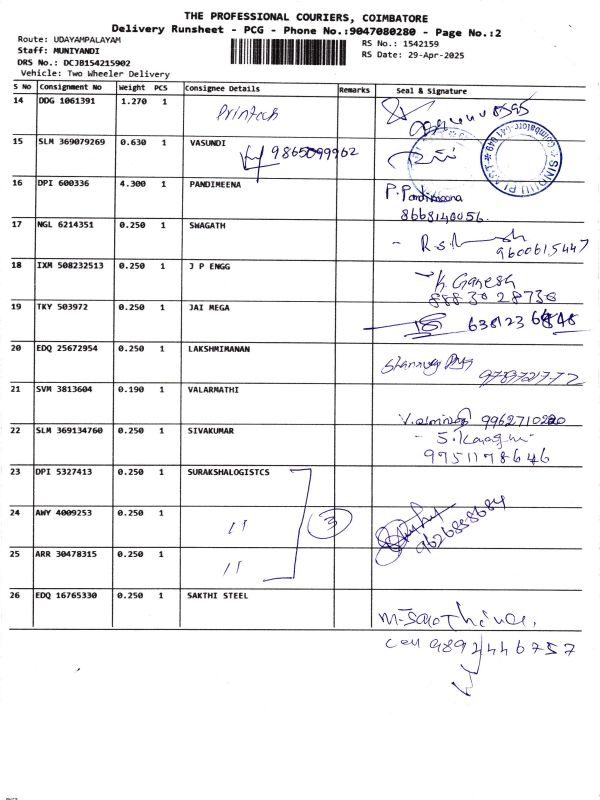 THE PROFESSIONAL COURIERS, COIMBATORE
Delivery Runsheet - PCG - Phone No.:9047080280 - Page No.:2
Route: UDAYAMPALAYAM
RS No.: 1542159
Staff: MUNIYANDI
RS Date: 29-Apr-2025
DRS No.: DCJB154215902
Vehicle: Two Wheeler Delivery
S No Consignment No Weight PCS Consignee Details Remarks Seal & Signature
14 DDG 1061391 1.270 1 Printech
15 SLM 369079269 0.630 1 VASUNDI
9865099962
16 DPI 600336 4.300 1 PANDIMEENA P. Pandimeena
8668140056.
17 NGL 6214351 0.250 1 SWAGATH
9600615447
18 IXM 508232513 0.250 1 J P ENGG K. Ganesh
88830 28730
19 TKY 503972 0.250 1 JAI MEGA
20 EDQ 25672954 0.250 1 LAKSHMIMANAN
21 SVM 3813604 0.190 1 VALARMATHI
22 SLM 369134760 0.250 1 SIVAKUMAR
9751178646
23 DPI 5327413 0.250 1 SURAKSHALOGISTCS
24 AWY 4009253 0.250 1 " 3 9626858684
25 ARR 30478315 0.250 1 "
26 EDQ 16765330 0.250 1 SAKTHI STEEL
Cell 9892446757